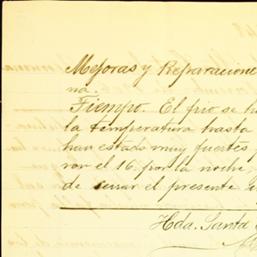 Mejoras y Reparacione
na.
Tiempo. El frio se h
la temperatura hasta
han estado muy fuertes
ron el 16. por la noche,
de cerrar el presente
Hda. Santa